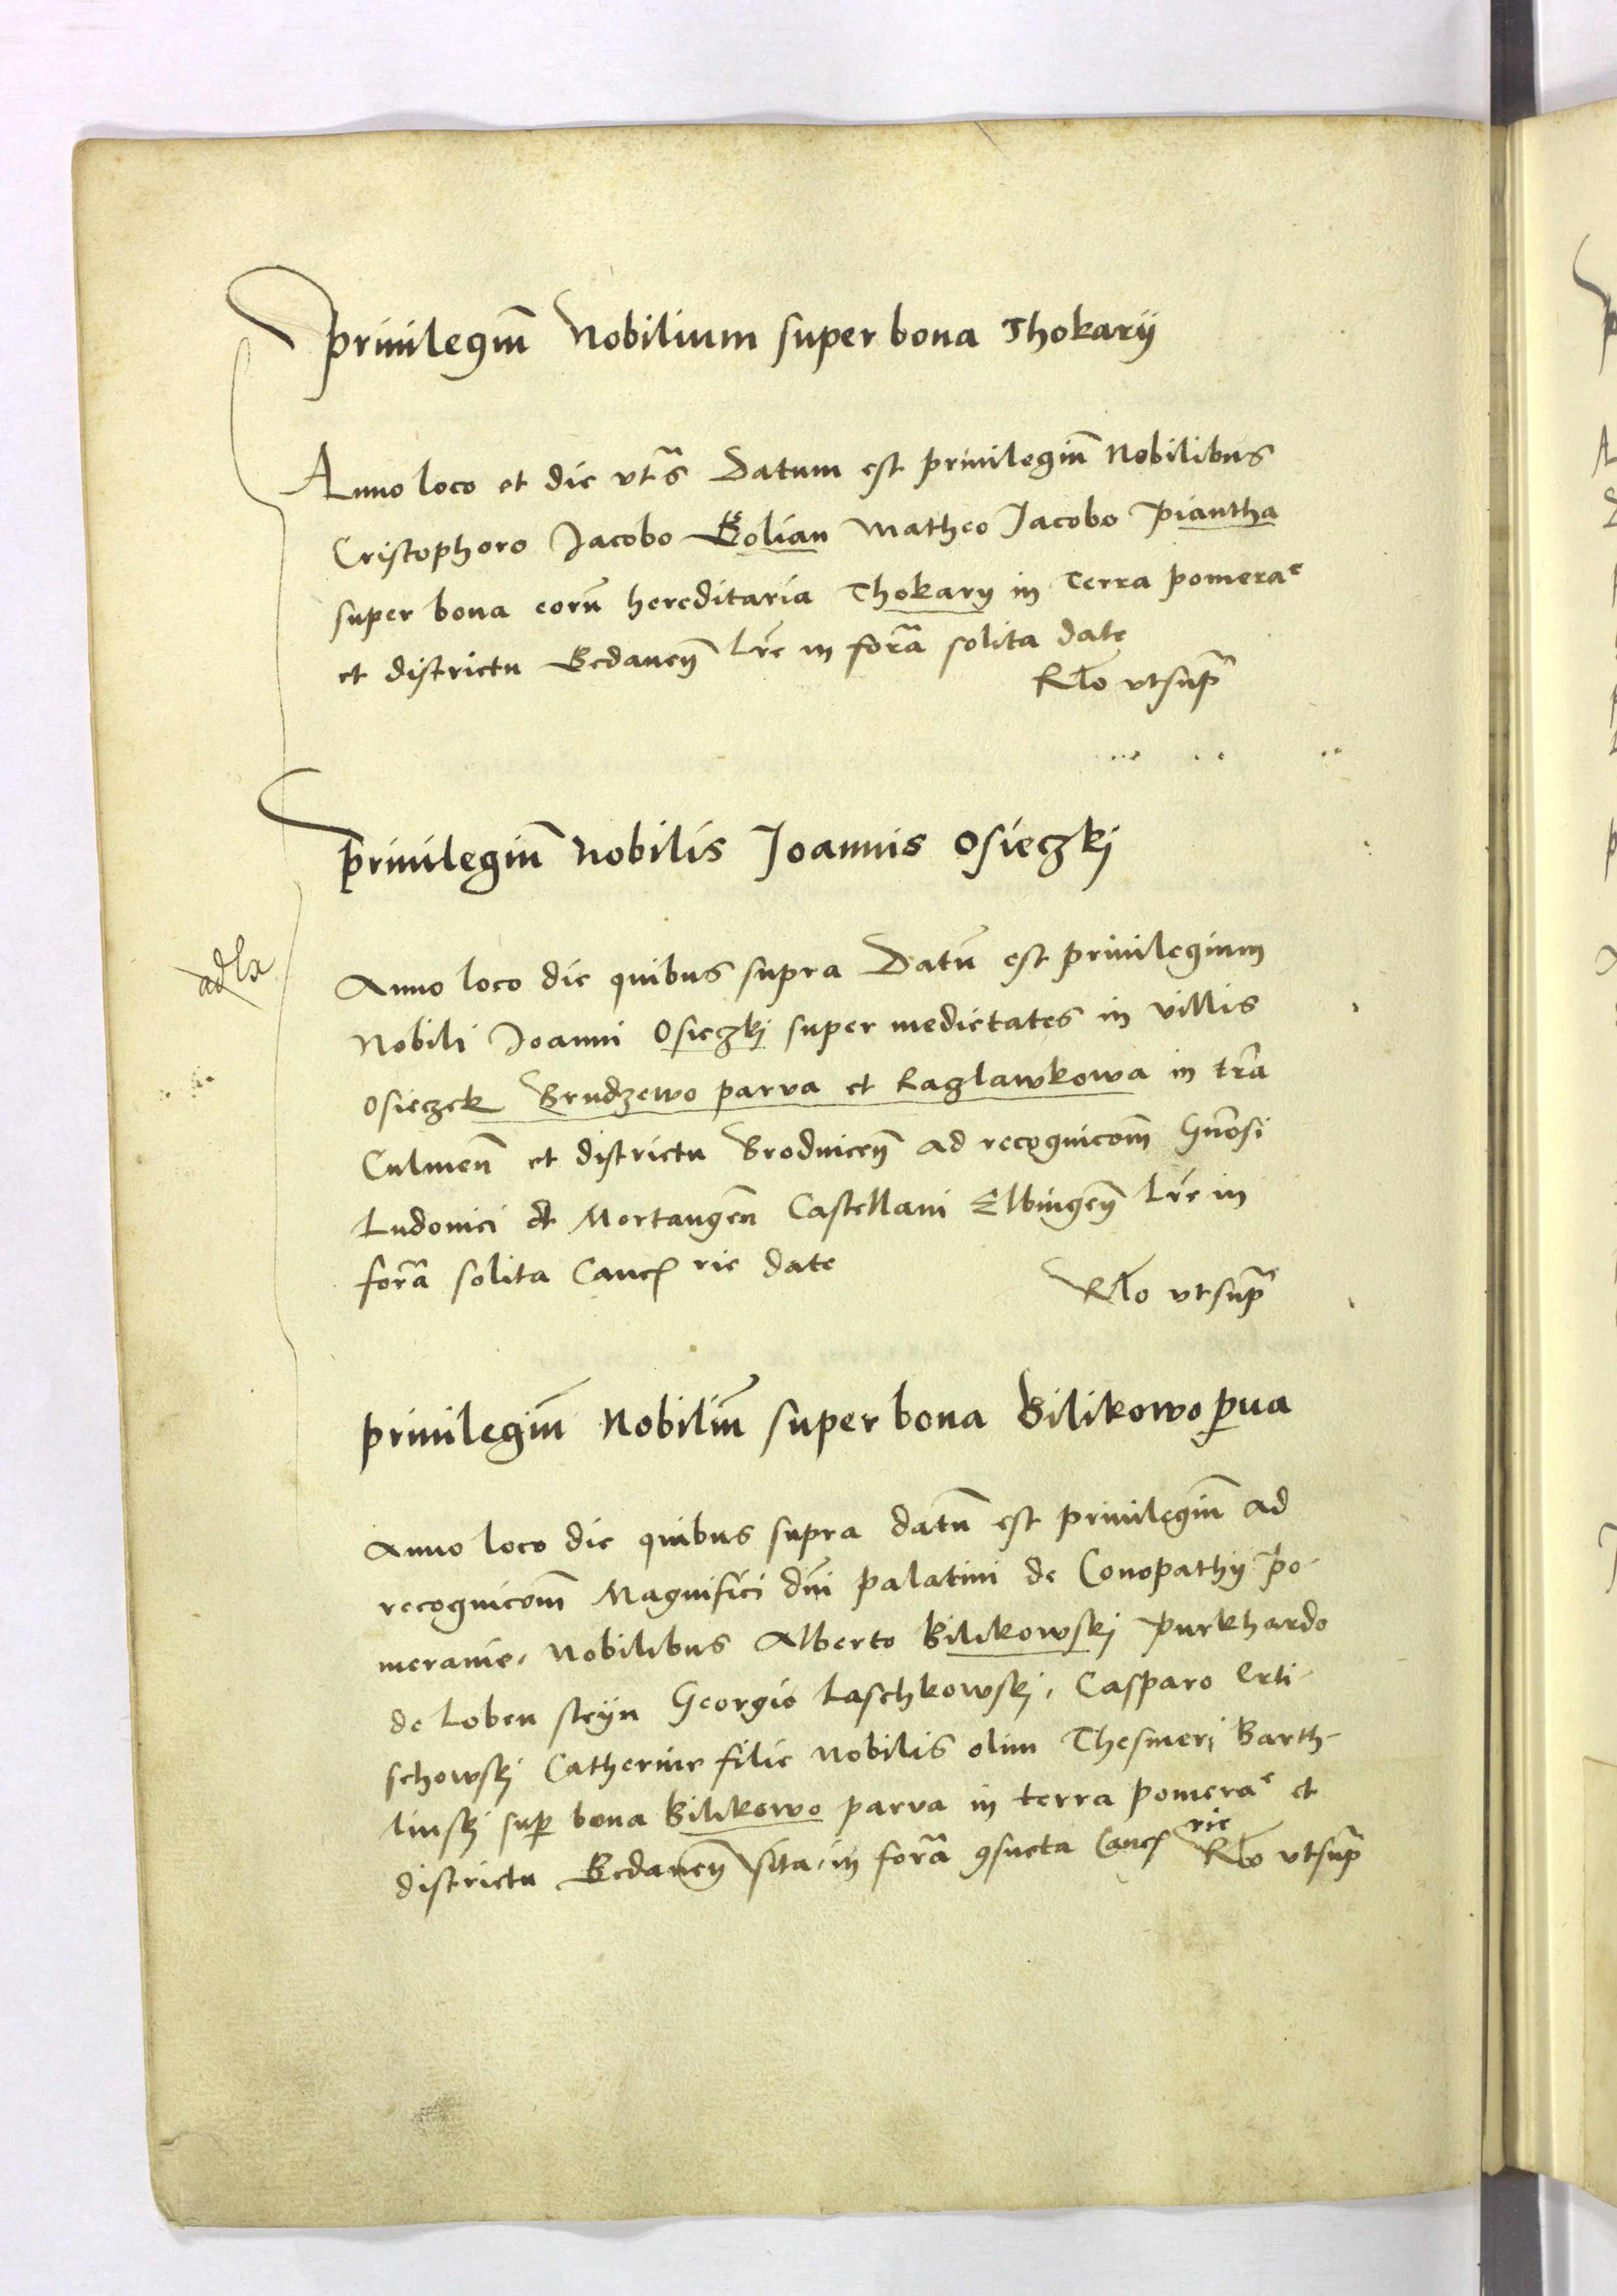 Privilegiu͂ Nobilium super bona Thokarij
Anno loco et die vts͂ Datum est privilegiu͂ Nobilibus
Cristophoro Jacobo Bolian Matheo Jacobo Piantha
super bona eoru͂ hereditaria Thokary in Terra pomeraᵉ
et districtu Gedanen͂ Lr͂e in for͂a solita date
Rl͂o vtsup͂
Privilegiu͂ Nobilis Joannis Osieczkj
ad
Anno loco die quibus supra Datu͂ est privilegium
Nobili Joanni Osieczkj super medietates in villis
Osieczek Brudzewo parva et Raglawkowa in tr͂a
Culmen͂ et districtu Brodnicen͂ ad recognicom͂ Gn͂osi
Ludovici de Mortangen͂ Castellani Elbingen͂ Lr͂e in
for͂a solita Canc͂ rie date
Rl͂o vtsup͂
Privilegiu͂ Nobiliu͂ super bona Bilikowo p͂va
Anno loco die quibus supra datu͂ est privilegiu͂ ad
recognicom͂ Magnifici dn͂i palatini de Conopathy Po-
meranie, Nobilibus Alberto Bilikowskj Purkhardo
de Loben steyn Georgio Laschkowskj, Casparo Crti-
schowskj Catherine filie Nobilis olim Thesmerj Barth-
linskj sup͂ bona Bilikowo parva in terra pomeraᵉ et
districtu Gedanen͂ sita, in for͂a ꝯsueta Canc͂ rie Rl͂o vtsup͂